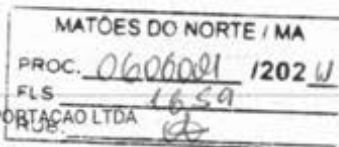 MATÕES DO NORTE / MA
PROC. 0600001 /202
FLS 1659
PORTAÇAO LTDA
RUB.